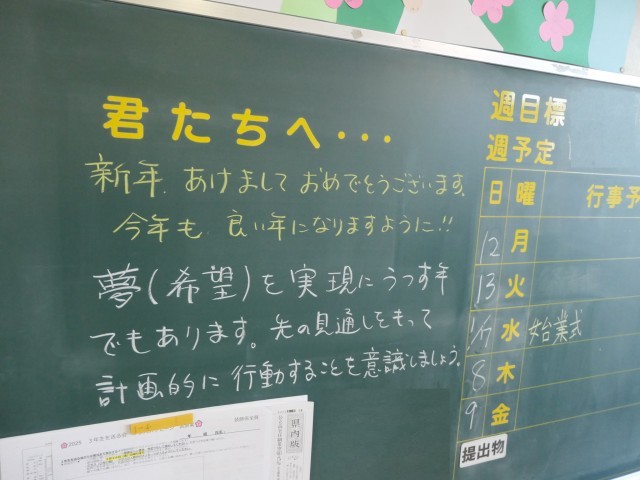 君たちへ・・・
新年、あけましておめでとうございます。
今年も、良い年になりますように!!
夢(希望)を実現にうつす年
でもあります。先の見通しをもって
計画的に行動することを意識しましょう。
週目標
週予定
日 曜 行事予
12 月
13 火
1/7 水 始業式
8 木
9 金
提出物
県内版